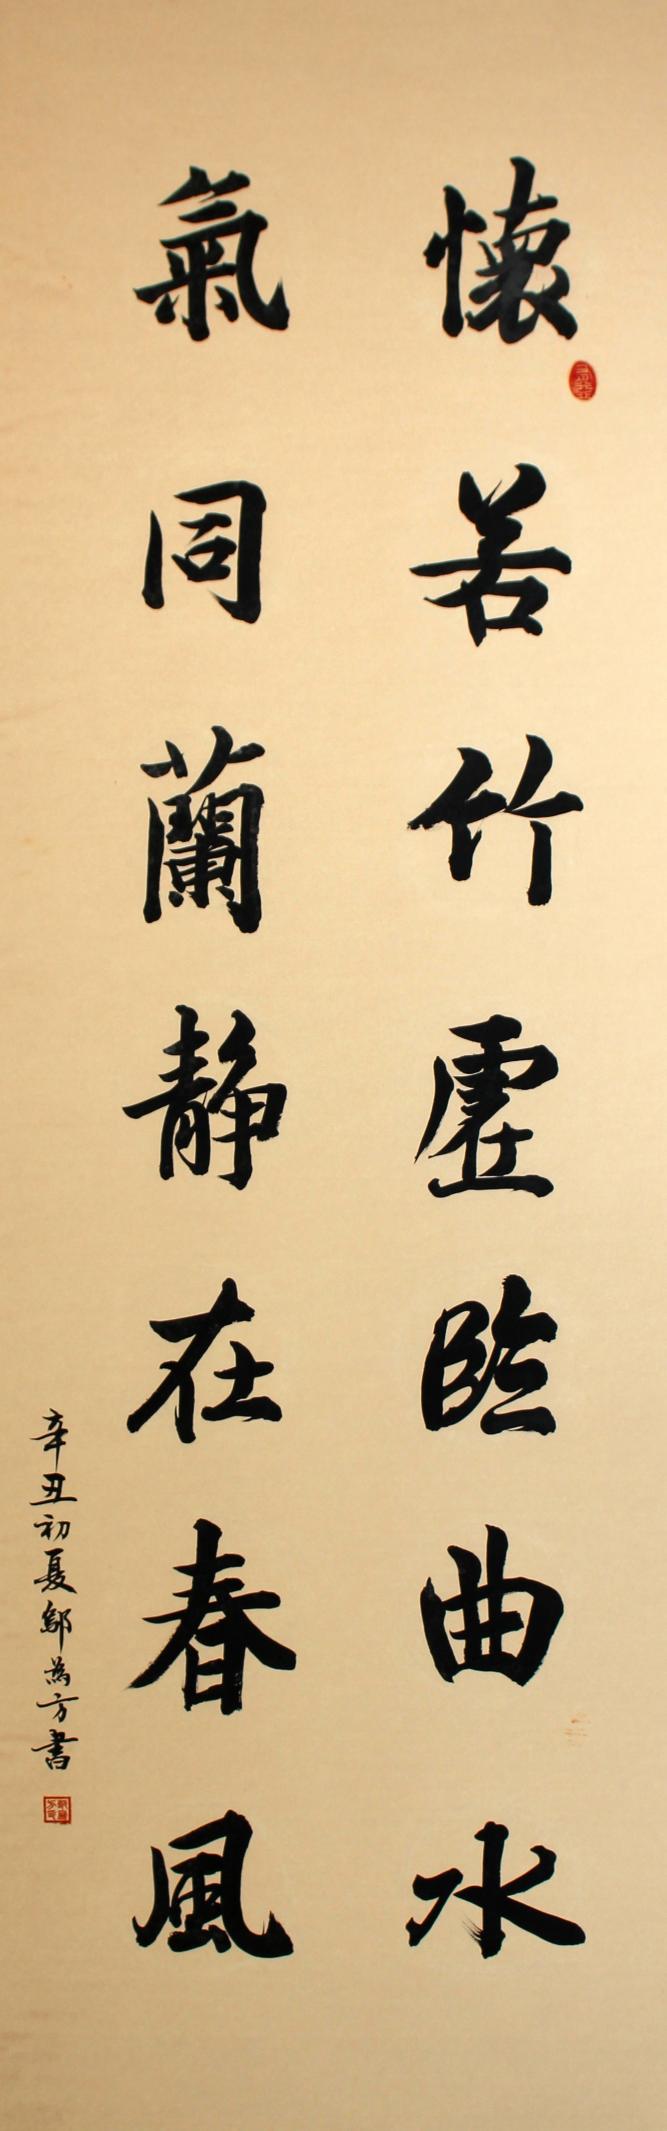 懷若竹虛臨曲水
氣同蘭静在春風
辛丑初夏鄔為方書